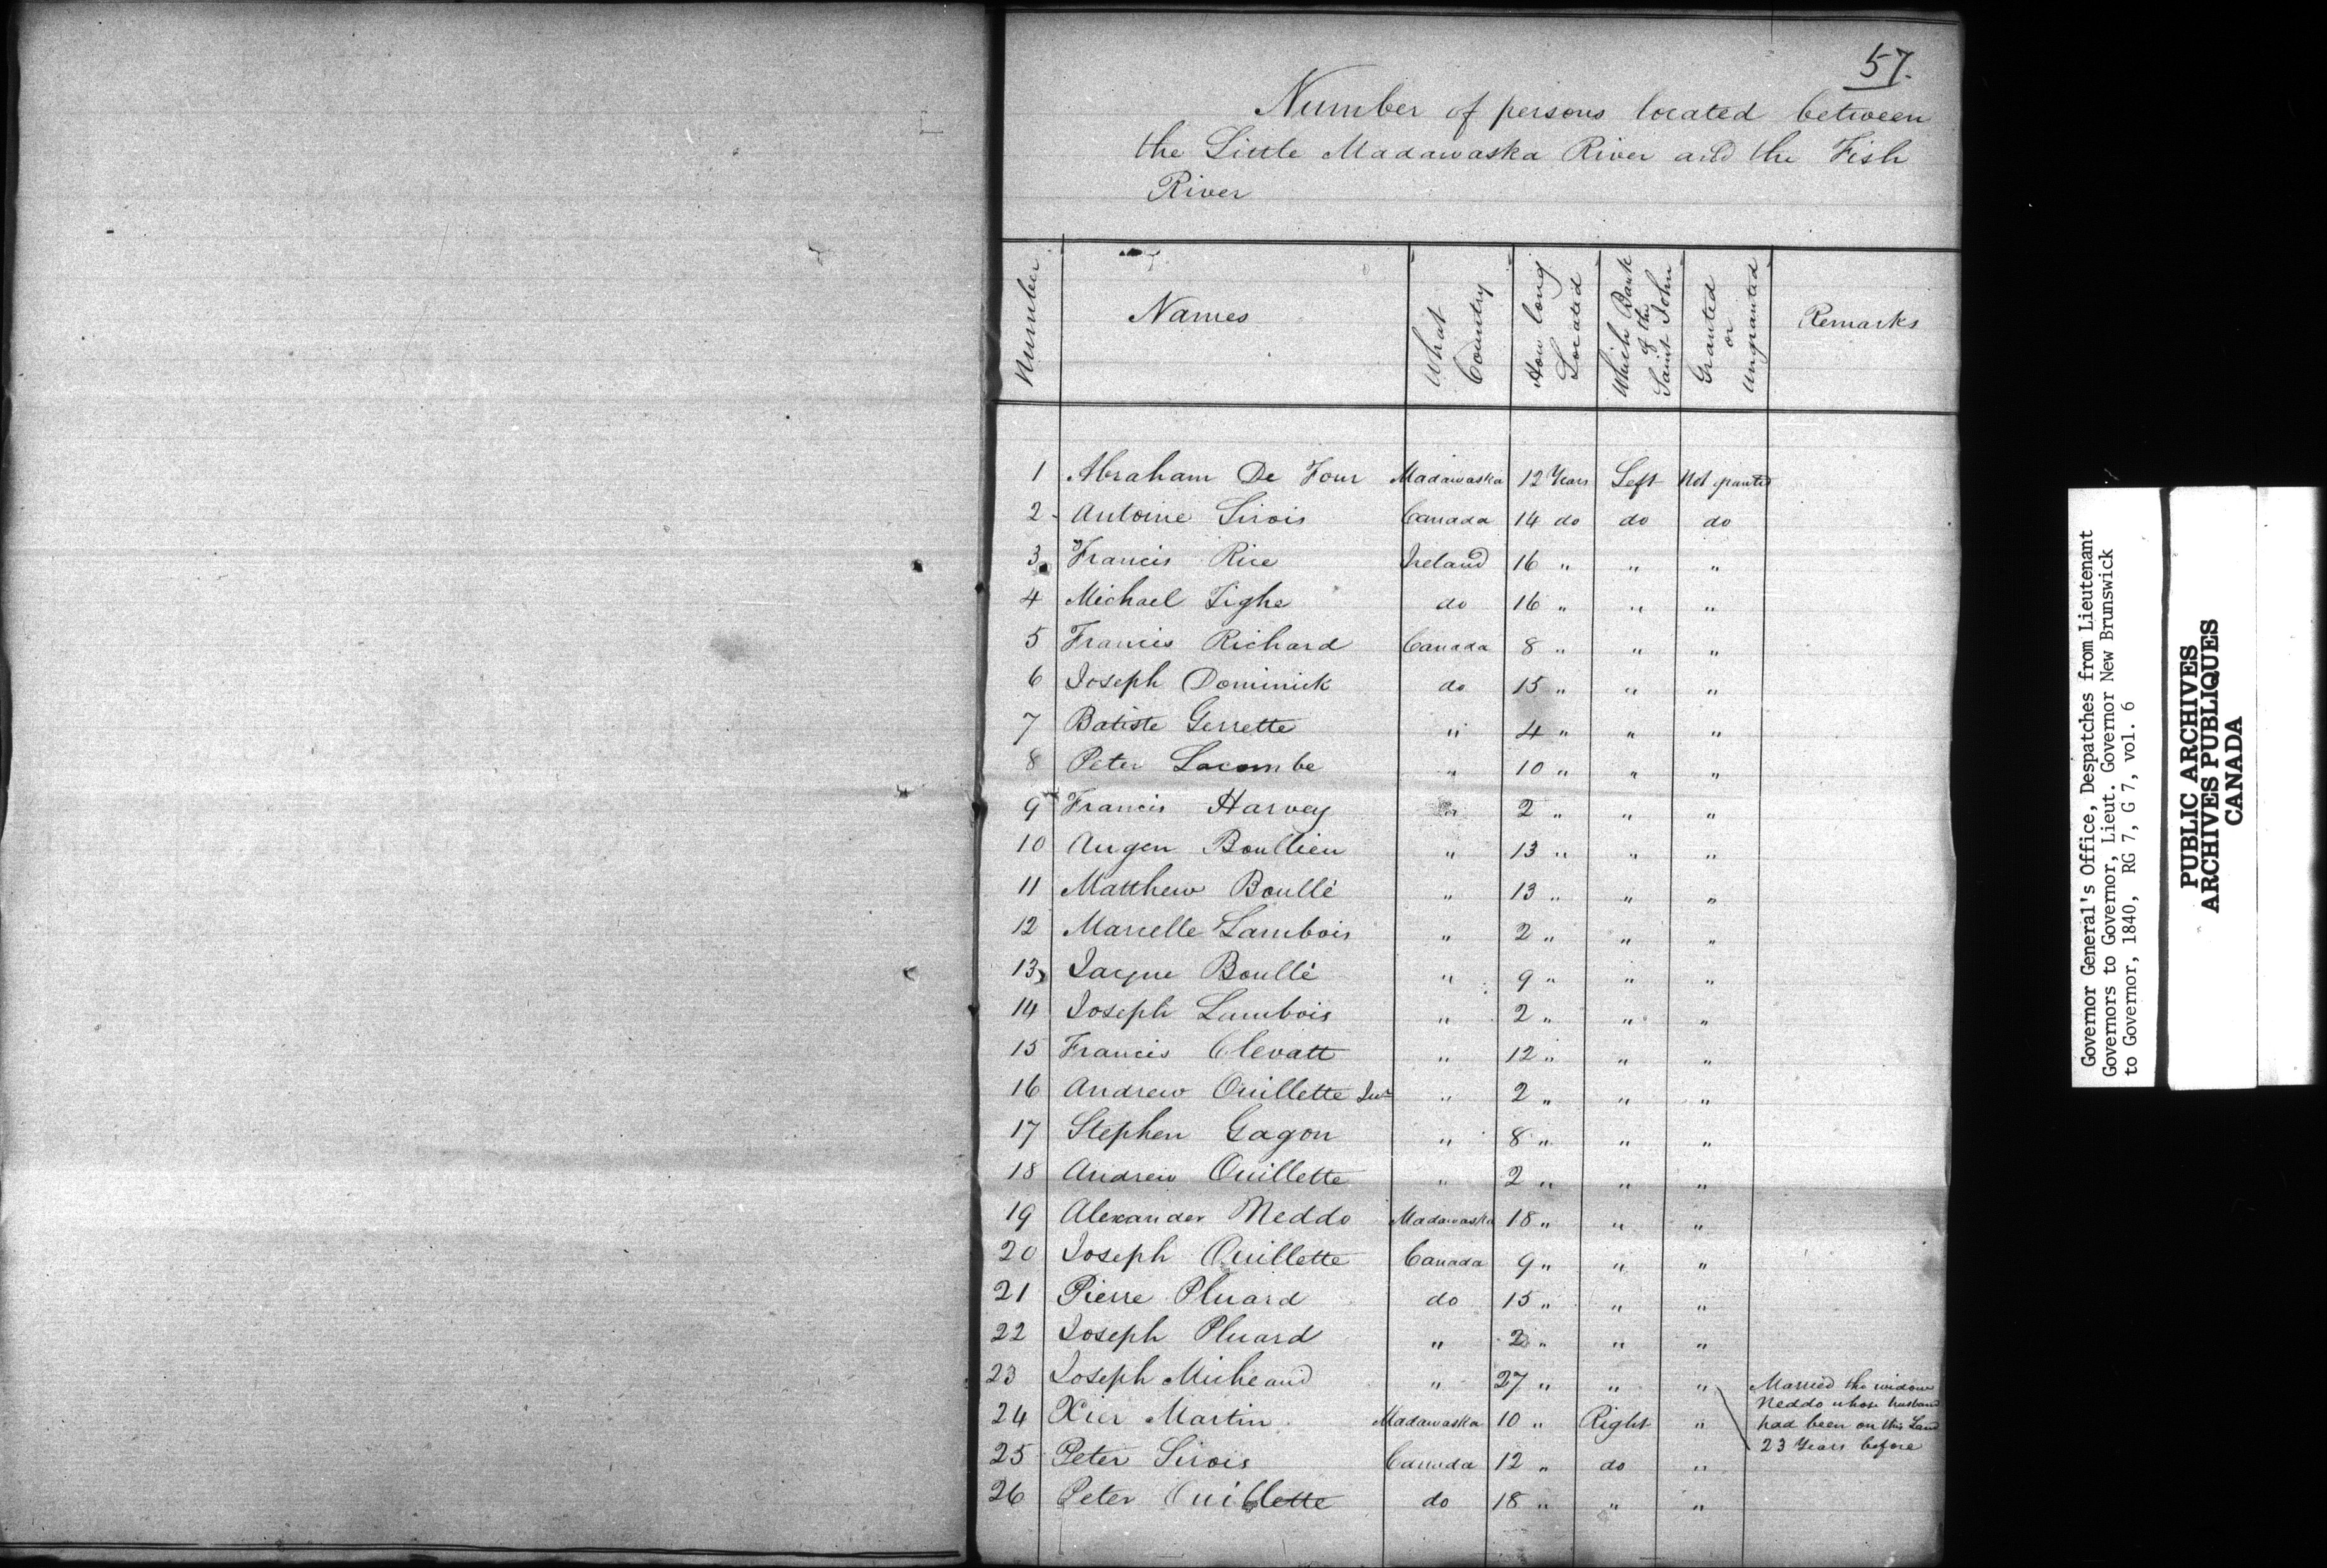 57.
Number of persons located between
the Little Madawaska River and the Fish
River
Number Names What Country How long Located Which Bank of the Saint John Granted or Ungranted Remarks
1 Abraham De Four Madawaska 12 Years Left Not granted
2 Antoine Sirois Canada 14 do do do
3 Francis Rice Ireland 16 " " "
4 Michael Tighe do 16 " " "
5 Francis Richard Canada 8 " " "
6 Joseph Dominick do 15 " " "
7 Batiste Gerrette " 4 " " "
8 Peter Lacombe " 10 " " "
9 Francis Harvey " 2 " " "
10 Augen Boullieu " 13 " " "
11 Matthew Boullé " 13 " " "
12 Marcelle Lambois " 2 " " "
13 Jacque Boullé " 9 " " "
14 Joseph Lambois " 2 " " "
15 Francis Clevatt " 12 " " "
16 Andrew Ouillette Junr " 2 " " "
17 Stephen Gagon " 8 " " "
18 Andrew Ouillette " 2 " " "
19 Alexander Neddo Madawaska 18 " " "
20 Joseph Ouillette Canada 9 " " "
21 Pierre Pluard do 15 " " "
22 Joseph Pluard " 2 " " "
23 Joseph Micheaud " 27 " " " Married the widow
Neddo whose husband
24 Xier Martin Madawaska 10 " Right " had been on this Land
23 Years before
25 Peter Sirois Canada 12 " do "
26 Peter Ouillette do 18 " " "
Governor General's Office, Despatches from Lieutenant
Governors to Governor, Lieut. Governor New Brunswick
to Governor, 1840, RG 7, G 7, vol. 6
PUBLIC ARCHIVES
ARCHIVES PUBLIQUES
CANADA